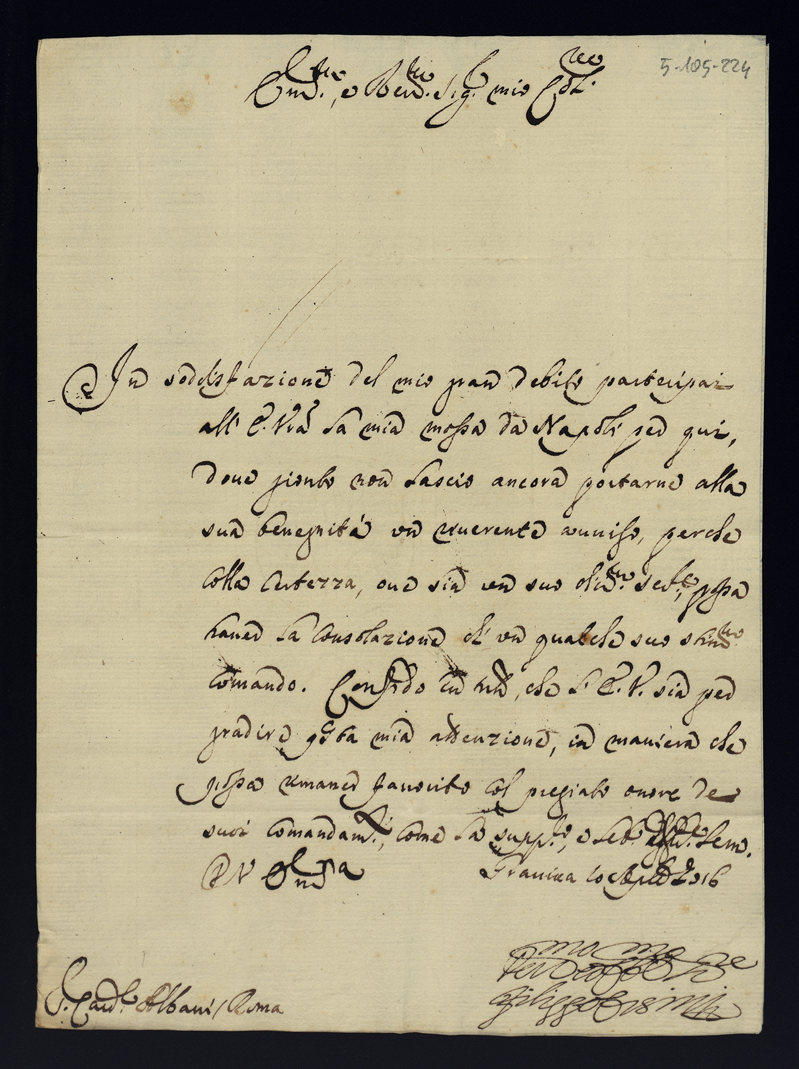 5-105-224
Em.mo, e Rev.mo Sig.r mio Col.mo
In sodisfazione del mio gran debito partecipai
all' E. Vra la mia mossa da Napoli per qui,
doue gionto non lascio ancora portarne alla
sua benegnità un riuerente auuiso, perche
colla certezza, oue sia un suo di.mo ser.re, possa
hauer la consolazione di un qualche suo stim.mo
comando. Confido che l' E. V. sia per
gradire q.sta mia attenzione, in maniera che
possa rimaner fauorito col pregiato onore de
suoi comandam.ti, come la supp.co, e
D V Em.za Grauina 10 1716
S. Card.l Albani / Roma
Filippo Orsini